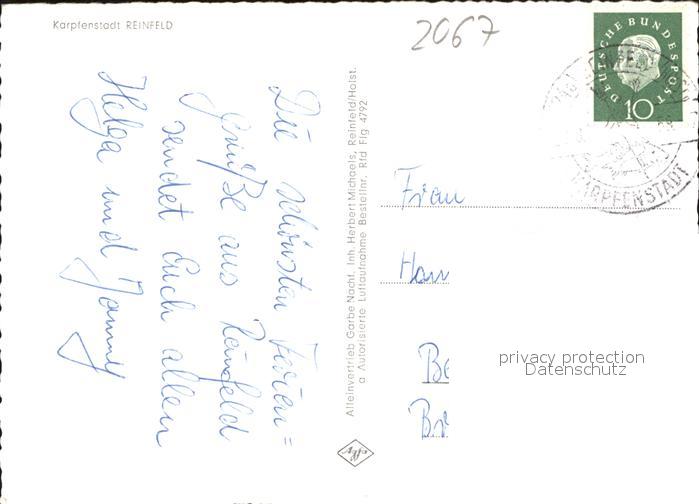 Karpfenstadt REINFELD
2067
DEUTSCHE BUNDESPOST
10
KARPFENSTADT
Die schönsten Ferien=
grüße aus Reinfeld
sendet Euch allen
Helga und
Alleinvertrieb Garbe Nachf., Inh. Herbert Michaels, Reinfeld/Holst.
a Autorisierte Luftaufnahme Bestellnr. Rfd Flg 4792
Frau
privacy protection
Datenschutz